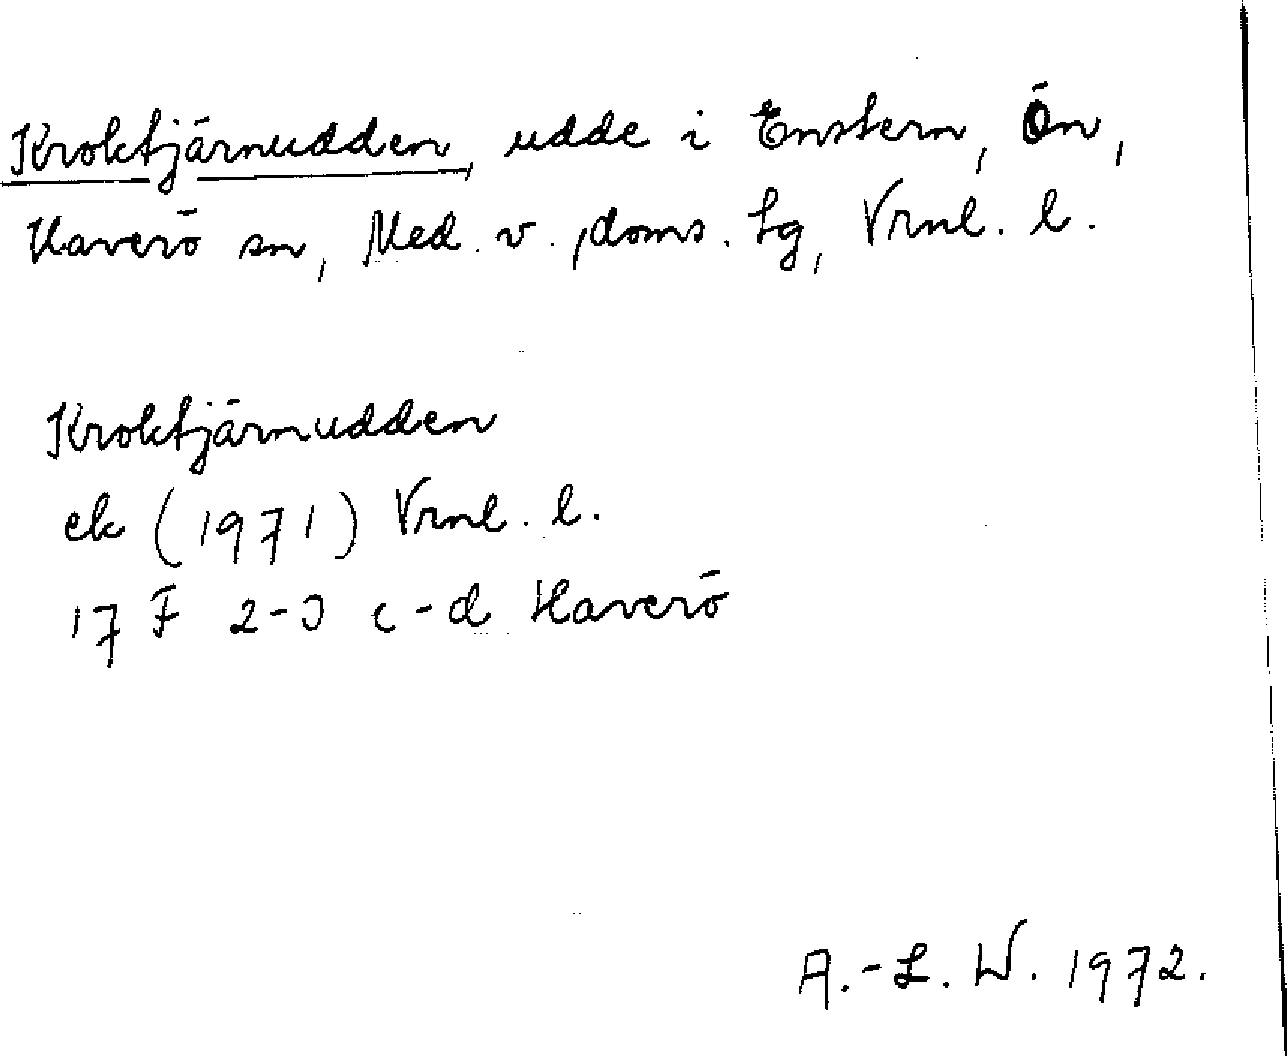 Kroktjärnudden, udde i Enstern, Ön,
Haverö sn, Med. v., doms. tg, Vrnl. l.
Kroktjärnudden
ek (1971) Vrnl. l.
17 F 2-3 c-d Haverö
A.-L. W. 1972.